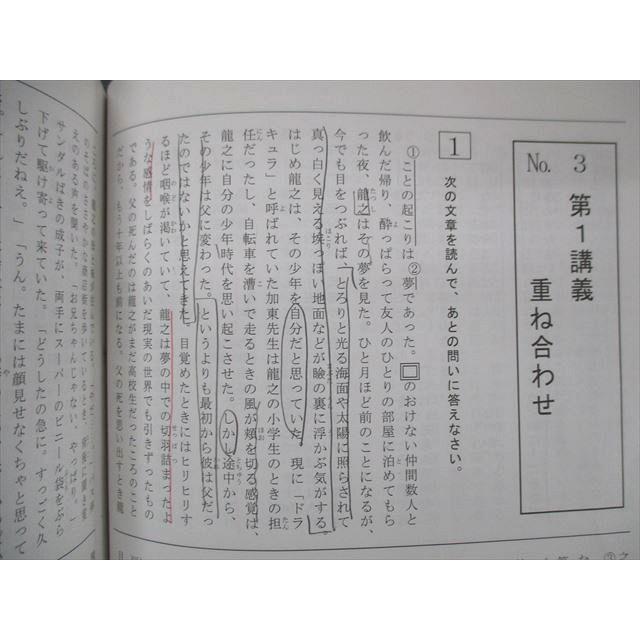 No. 3　第1講義
重ね合わせ
1　次の文章を読んで、あとの問いに答えなさい。
①ことの起こりは②夢であった。□のおけない仲間数人と
飲んだ帰り、酔っぱらって友人のひとりの部屋に泊めてもら
った夜、龍之はその夢を見た。ひと月ほど前のことになるが、
今でも目をつぶれば、とろりと光る海面や太陽に照らされて
真っ白く見える埃っぽい地面などが瞼の裏に浮かぶ気がする。
はじめ龍之は、その少年を自分だと思っていた。現に「ドラ
キュラ」と呼ばれていた加東先生は龍之の小学生のときの担
任だったし、自転車を漕いで走るときの風が頬を切る感覚は、
龍之に自分の少年時代を思い起こさせた。しかし途中から、
その少年は父に変わった。というよりも最初から彼は父だっ
たのではないかと思えてきた。目覚めたときにはヒリヒリす
るほど咽喉が渇いていて、龍之は夢の中での切羽詰まったよ
うな感情をしばらくのあいだ現実の世界でも引きずったもの
である。父の死んだのは龍之がまだ高校生だったころのこと
だから、もう十年以上も前になる。父の死を思い出すとき龍
えのある声を聞いた。「お兄ちゃんじゃない、やっぱり。」
サンダルばきの成子が、両手にスーパーのビニール袋をぶら
下げて駆け寄って来ていた。「どうしたの急に。すっごく久
しぶりだねえ。」「うん。たまには顔見せなくちゃと思って